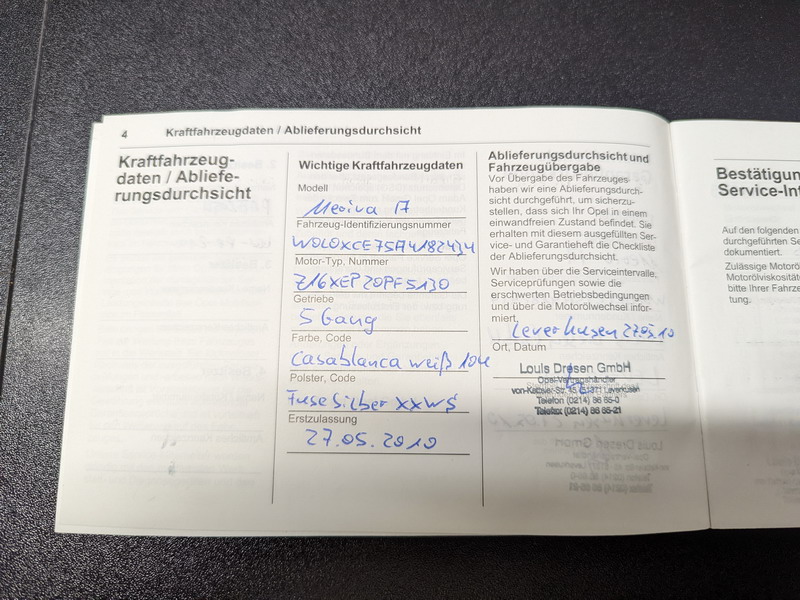 4 Kraftfahrzeugdaten / Ablieferungsdurchsicht
Kraftfahrzeug-
daten / Abliefe-
rungsdurchsicht
Wichtige Kraftfahrzeugdaten
Modell
Meriva A
Fahrzeug-Identifizierungsnummer
W0L0XCE75A4182434
Motor-Typ, Nummer
Z16XEP 20PF5130
Getriebe
5 Gang
Farbe, Code
Casablanca weiß 10u
Polster, Code
Fuse Silber XXWS
Erstzulassung
27.05.2010
Ablieferungsdurchsicht und
Fahrzeugübergabe
Vor Übergabe des Fahrzeuges
haben wir eine Ablieferungsdurch-
sicht durchgeführt, um sicherzu-
stellen, dass sich Ihr Opel in einem
einwandfreien Zustand befindet. Sie
erhalten mit diesem ausgefüllten Ser-
vice- und Garantieheft die Checkliste
der Ablieferungsdurchsicht.
Wir haben über die Serviceintervalle,
Serviceprüfungen sowie die
erschwerten Betriebsbedingungen
und über die Motorölwechsel infor-
miert.
Leverkusen 27.05.10
Ort, Datum
Louis Dresen GmbH
Opel-Vertragshändler
von-Ketteler-Str. 51371 Leverkusen
Telefon (0214) 86 85-0
Telefax (0214) 86 85-21
Bestätigun
Service-Int
Auf den folgenden
durchgeführten Se
dokumentiert.
Zulässige Motorö
Motorölviskosität
bitte Ihrer Fahrze
tung.